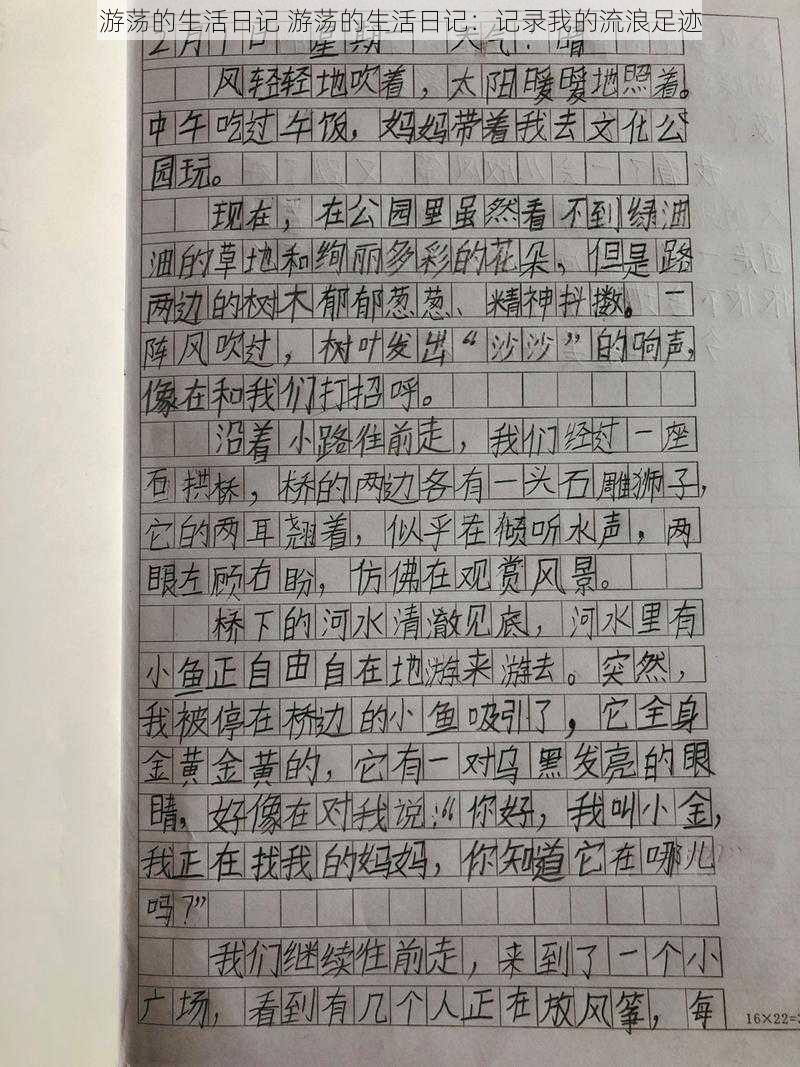 游荡的生活日记 游荡的生活日记：记录我的流浪足迹
2月1日 星期 天气：晴
风轻轻地吹着，太阳暖暖地照着。
中午吃过午饭，妈妈带着我去文化公
园玩。
现在，在公园里虽然看不到绿油
油的草地和绚丽多彩的花朵，但是路
两边的树木郁郁葱葱、精神抖擞。一
阵风吹过，树叶发出“沙沙”的响声，
像在和我们打招呼。
沿着小路往前走，我们经过一座
石拱桥，桥的两边各有一头石雕狮子，
它的两耳翘着，似乎在倾听水声，两
眼左顾右盼，仿佛在观赏风景。
桥下的河水清澈见底，河水里有
小鱼正自由自在地游来游去。突然，
我被停在桥边的小鱼吸引了，它全身
金黄金黄的，它有一对乌黑发亮的眼
睛，好像在对我说：“你好，我叫小金，
我正在找我的妈妈，你知道它在哪儿
吗？”
我们继续往前走，来到了一个小
广场，看到有几个人正在放风筝，每
16×22=3